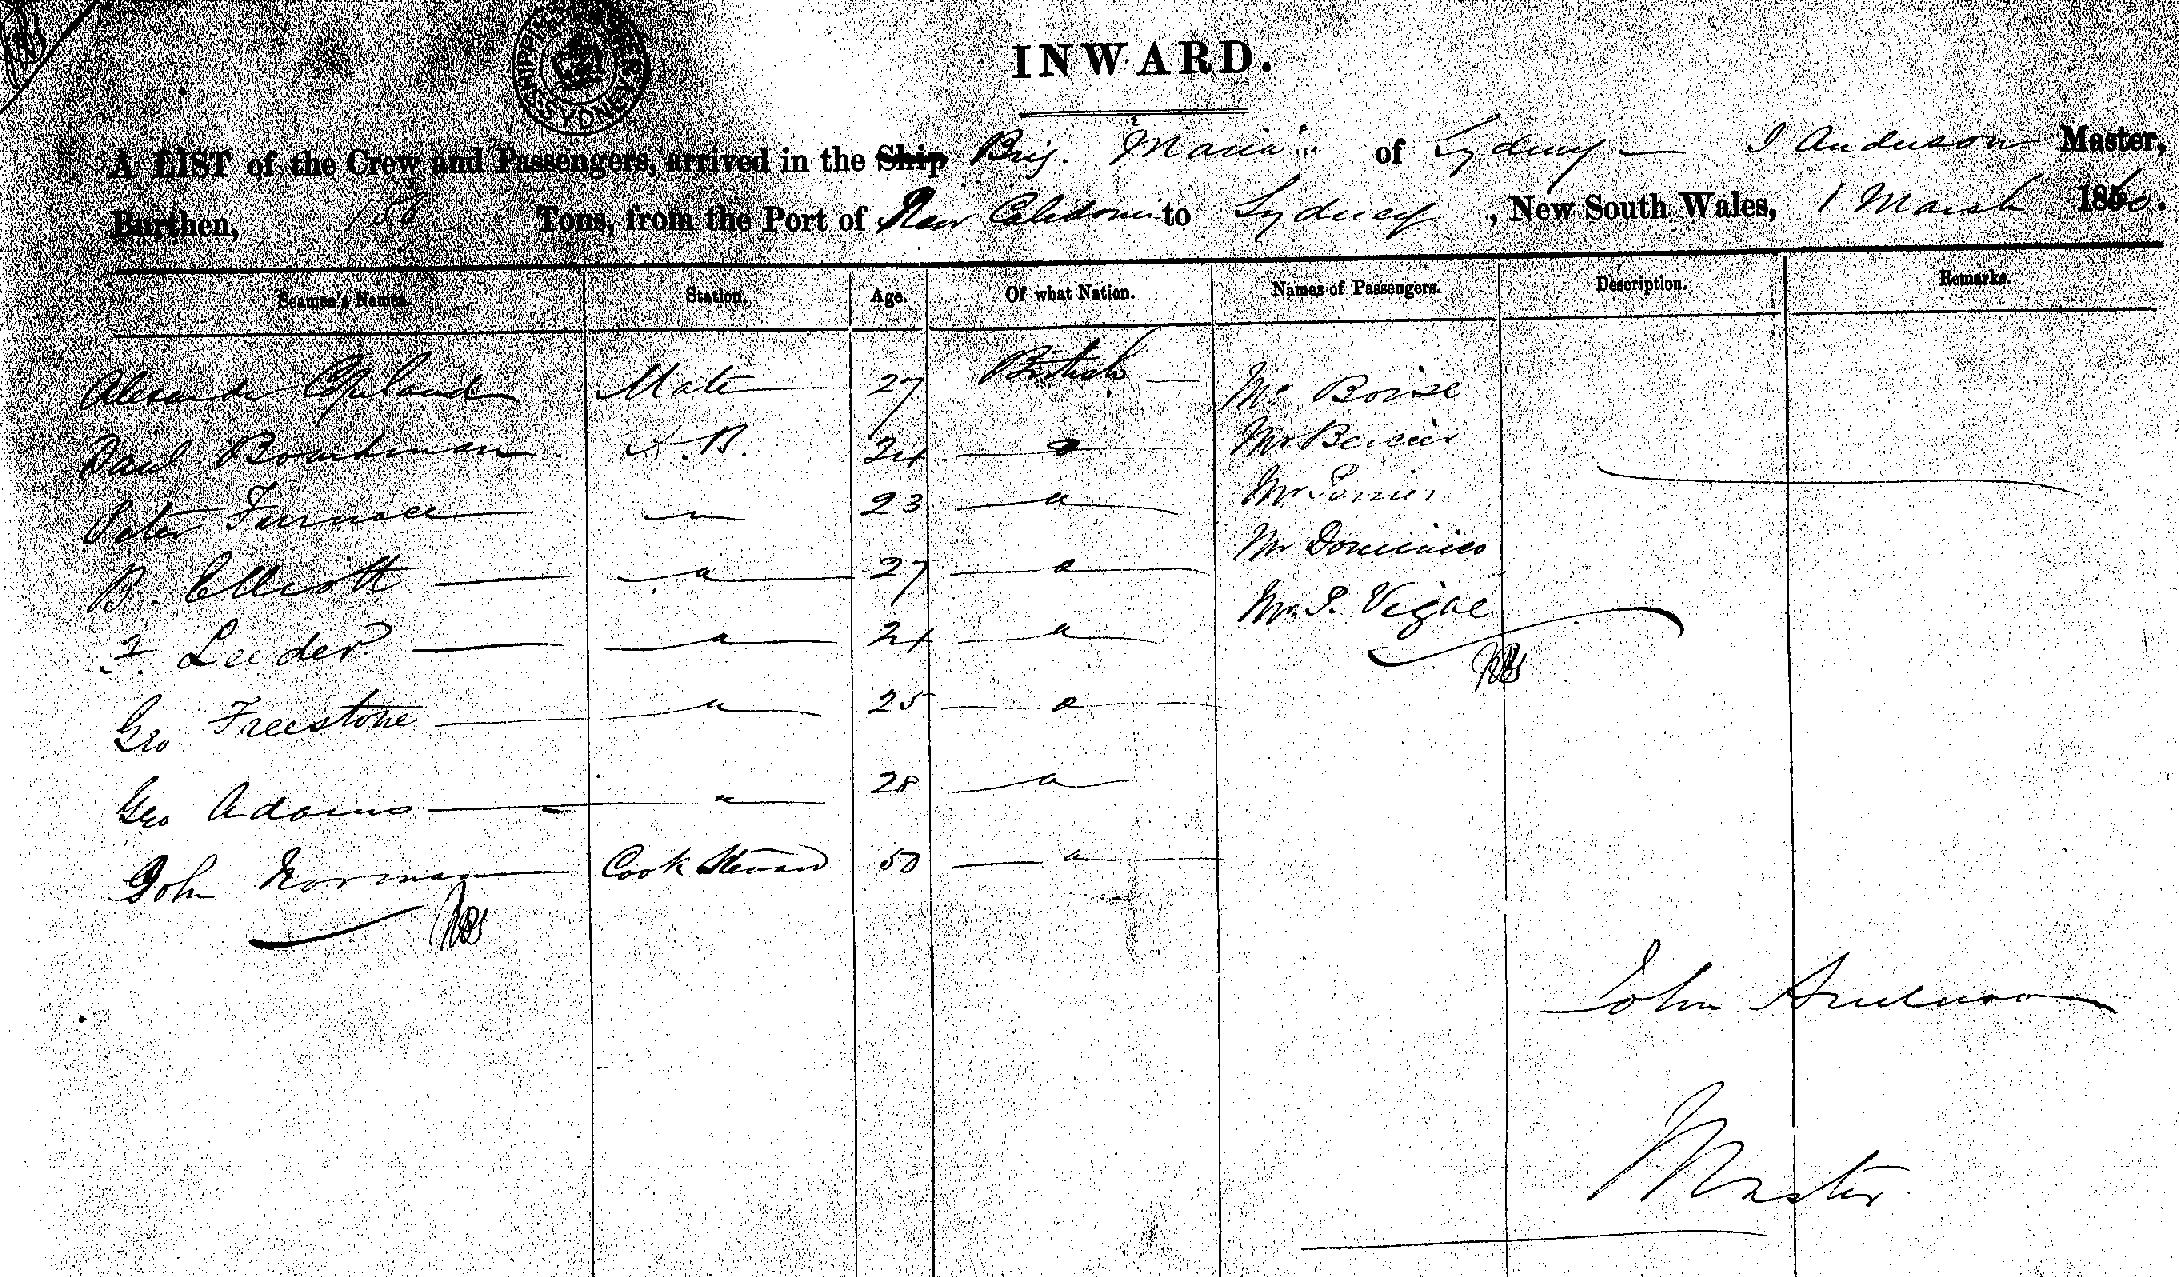 INWARD.
A LIST of the Crew and Passengers, arrived in the Ship Brig. "Maria" of Sydney — J Anderson Master,
Burthen, Tons, from the Port of New Caledonia to Sydney, New South Wales, 1 March 1860.
Seamen's Names. Station. Age. Of what Nation. Names of Passengers. Description. Remarks.
Alexander Copland Mate 27 British Mr
Paul Boardman A.B. 24 " Mr
Peter Furnace " 23 " Mr
B. Elliott " 27 " Mr Dominico
Leeder " 24 " Mr
Geo Freestone " 25 "
Geo Adams " 28 "
John Norman Cook Steward 50 "
John Anderson
Master